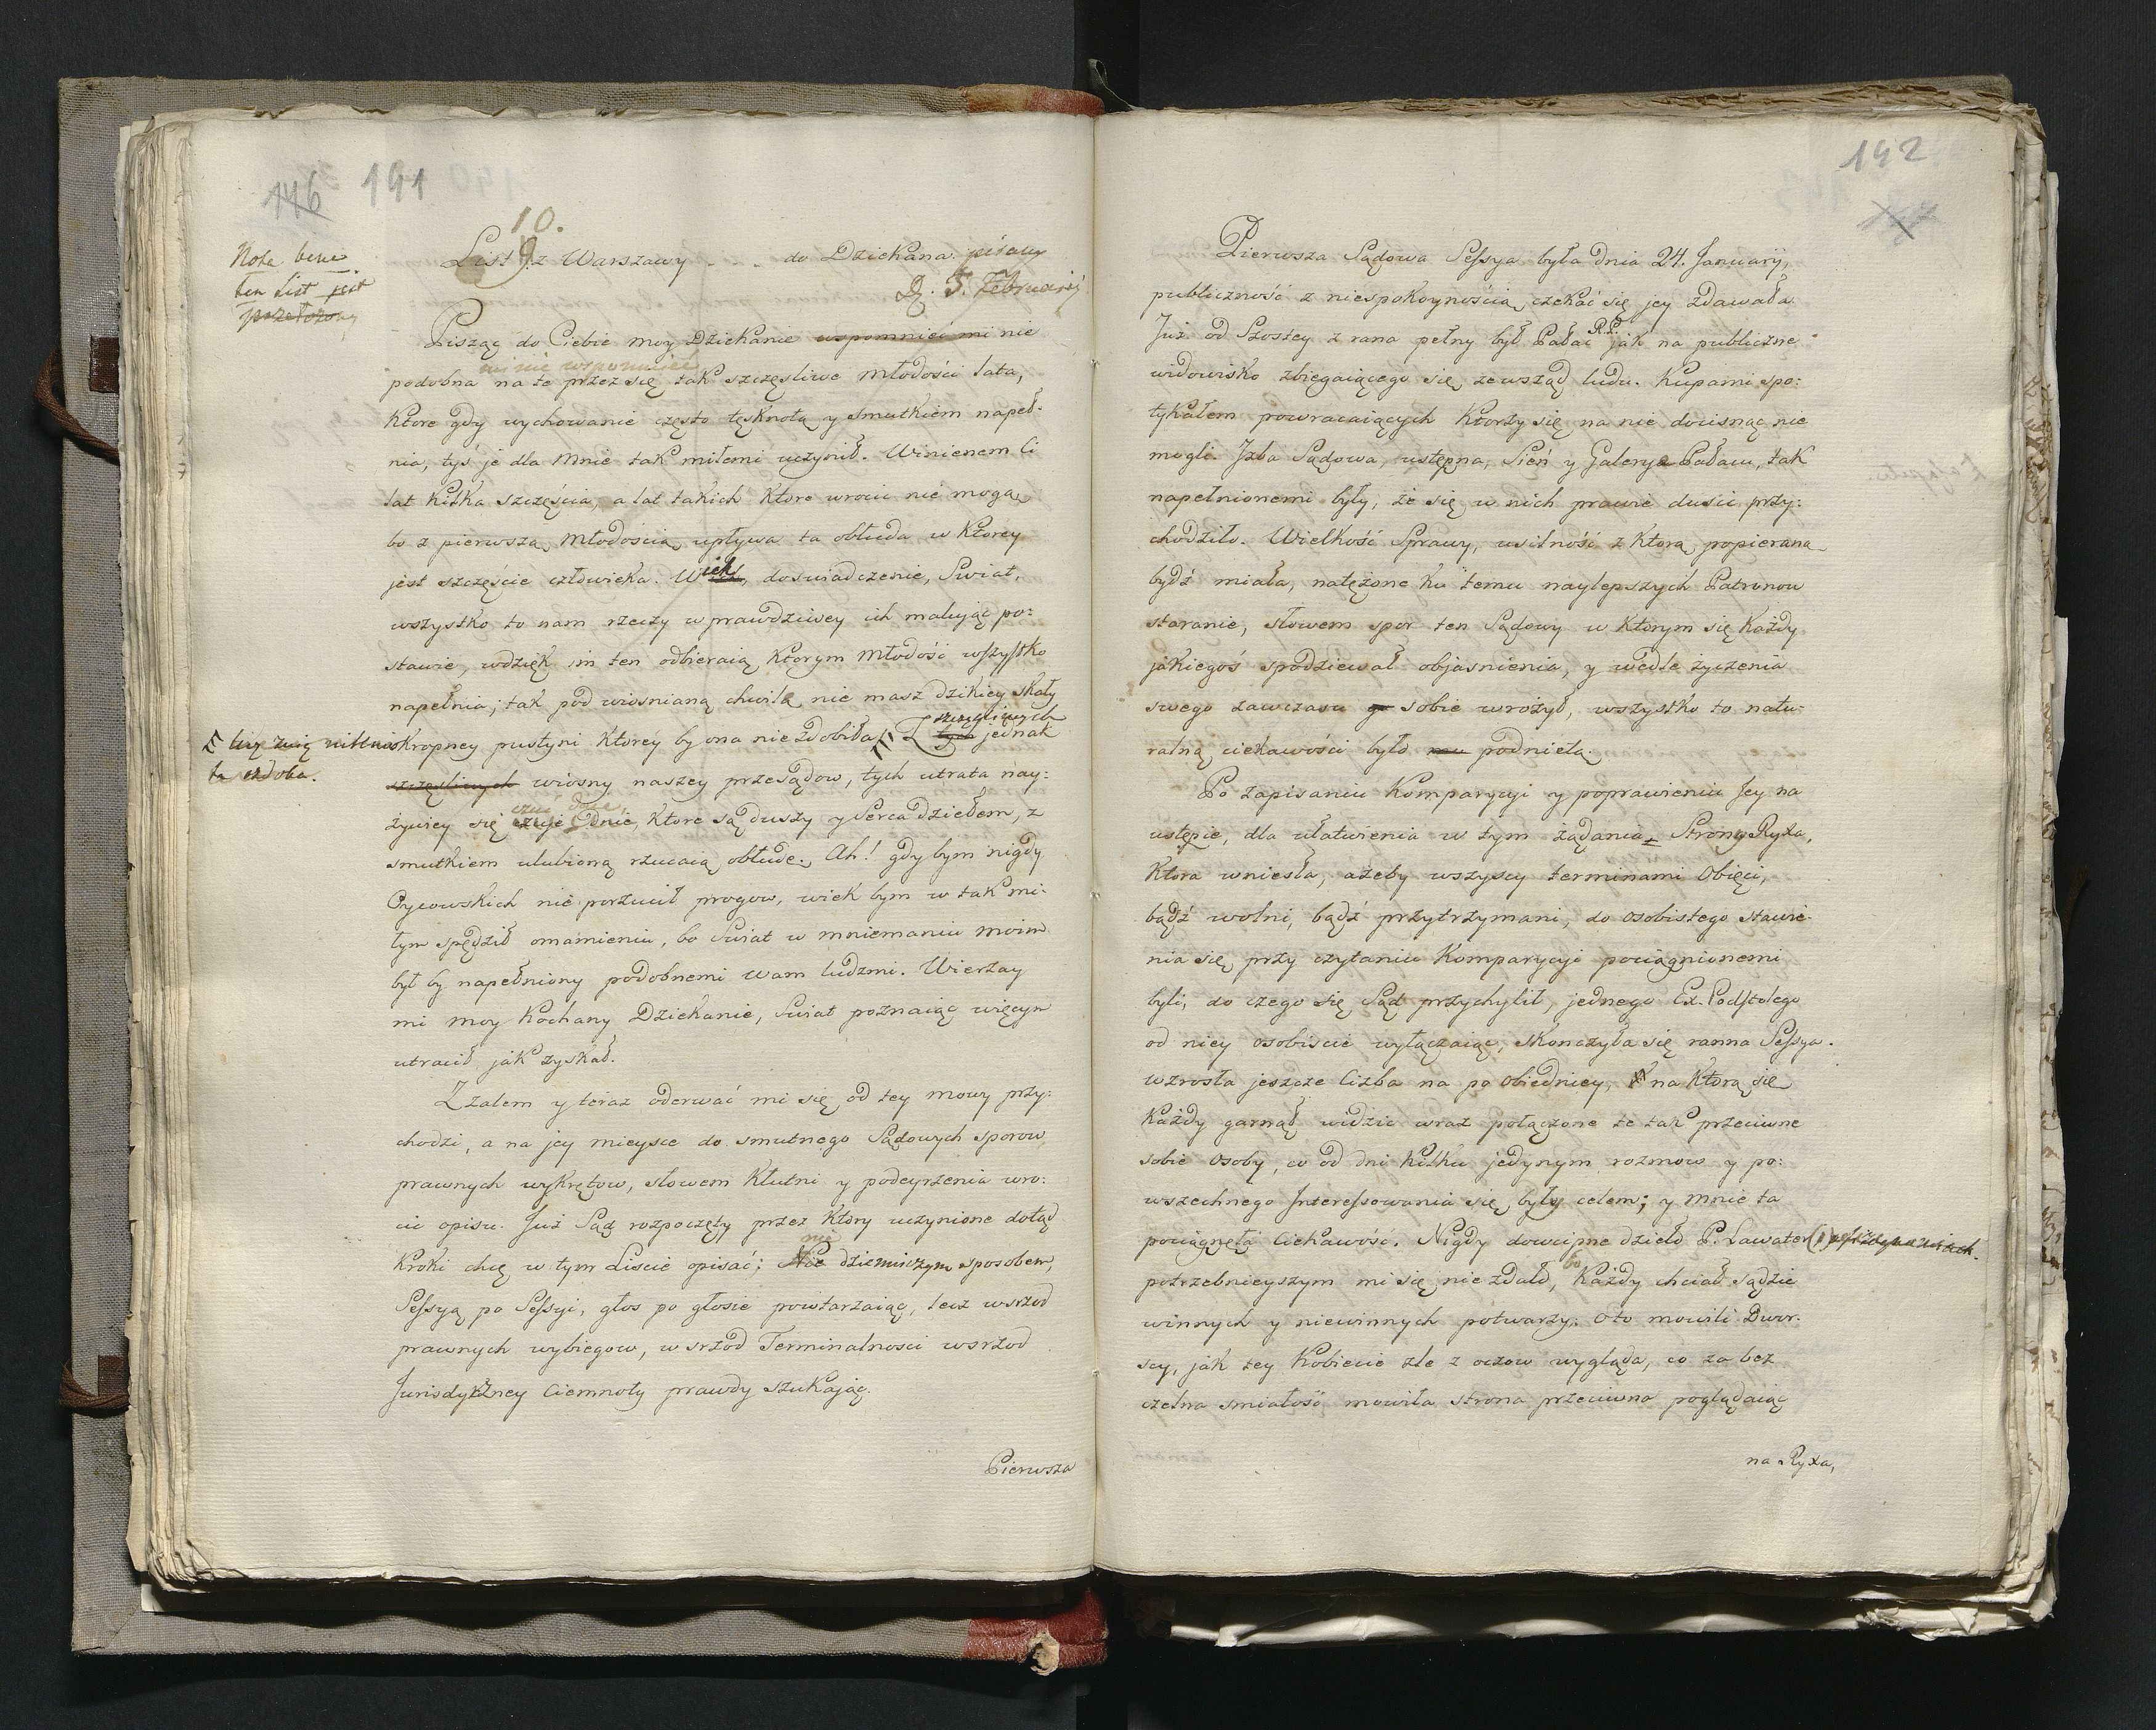 116 191
10.
Nota bene
ten List jest
przełożony
List 9 z Warszawy . . . do Dziekana pisany
D. 5. Februarij
Pisząc do Ciebie moy Dziekanie wspomnieć mi nie
mi nie wspomnieć
podobna na te przez się tak szczęsliwe młodości lata,
Ktore gdy wychowanie często tęsknotą y smutkiem napeł:
nia, tyś je dla mnie tak miłemi uczynił. Winienem Ci
lat kilka szczęścia, a lat takich Ktore wrocic nie mogą
bo z pierwszą młodością upływa ta obłuda w Ktorey
jest szczęście człowieka. Wiek, doswiadczenie, Swiat,
wszystko to nam rzeczy w prawdziwey ich malując po:
stawie, wdzięk im ten odbieraią Ktorym młodość wszystko
napełnia; tak pod wiosnianą chwilą nie masz dzikiey skały
okropney pustyni Ktorey by ona nie zdobiła. Z tych szczęsliwych jednak
ta ozdoba.
szczęsliwych wiosny naszey przesądow, tych utrata nay:
żywiey się czuje Odnie, Ktore są duszy y Serca dziełem, z
smutkiem ulubioną rzucaią obłudę. Ah! gdy bym nigdy
Pycowskich nie porzucił progow, wiek bym w tak mi:
łym spędził omamieniu, bo Swiat w mniemaniu moim
był by napełniony podobnemi wam ludzmi. Wierzay
mi moy Kochany Dziekanie, Swiat poznaiąc więcym
utracił jak zyskał.
Z żalem y teraz oderwać mi się od tey mowy przy:
chodzi, a na jey mieysce do smutnego Sądowych sporow
prawnych wykrętow, słowem Kłutni y podeyrzenia wro:
cic opisu. Już Sąd rozpoczęty przez Ktory uczynione dotąd
Kroki chcę w tym Liscie opisać; nie dzienniczym sposobem,
Sessyą po Sessyi, głos po głosie powtarzaiąc, lecz wsrzod
prawnych wybiegow, wsrzod Terminalnosci wsrzod
Jurisdykżney Ciemnoty prawdy szukając.
Pierwsza
192
Pierwsza Sądowa Sessya była dnia 24. Januarij,
publiczność z niespokoynością czekać się jey zdawała.
Już od Szostey z rana pełny był Pałac R.P. jak na publiczne
widowisko zbiegaiącego się zewsząd ludu. Kupami spo:
tykałem powracaiących Ktorzy się na nie docisnąc nie
mogli. Izba Sądowa, ustępna, Sień y Galerye Pałacu, tak
napełnionemi były, że się w nich prawie dusic przy:
chodziło. Wielkość Sprawy, usilność z Ktorą popierana
bydź miała, natężone ku temu naylepszych Patronow
staranie, słowem spor ten Sądowy w Ktorym się Każdy
jakiegoś spodziewał objasnienia, y wedle życzenia
swego zawczasu sobie wrożył, wszystko to natu:
ralną ciekawości było podnietą.
Po zapisaniu Komparycyi y poprawieniu Jey na
ustępie, dla ułatwienia w tym żądania Strony Ryxa,
Ktora wniesła, ażeby wszyscy terminami Obięci,
bądź wolni, bądź przytrzymani, do osobistego stawie:
nia się przy czytaniu Komparycyi pociągnionemi
byli, do czego się Sąd przychylił, jednego Ex-Podstolego
od niey osobiscie wyłączaiąc, skonczyła się ranna Sessya.
wzrosła jeszcze liczba na po obiedniey, na Ktorą się
Każdy garnął widzic wraz połączone te tak przeciwne
sobie osoby, co od dni Kilku jedynym rozmow y po:
wszechnego Interessowania się były celem; y mnie ta
pociągnęła Ciekawość. Nigdy dowcipne dzieło P. Lawater (i)
potrzebnieyszym mi się nie zdało, bo Każdy chciał sądzic
winnych y niewinnych potwarzy. Oto mowili Dwor:
scy, jak tey Kobiecie zle z oczow wygląda, co za bez
czelna smiałość mowiła strona przeciwna poglądaiąc
na Ryxa,